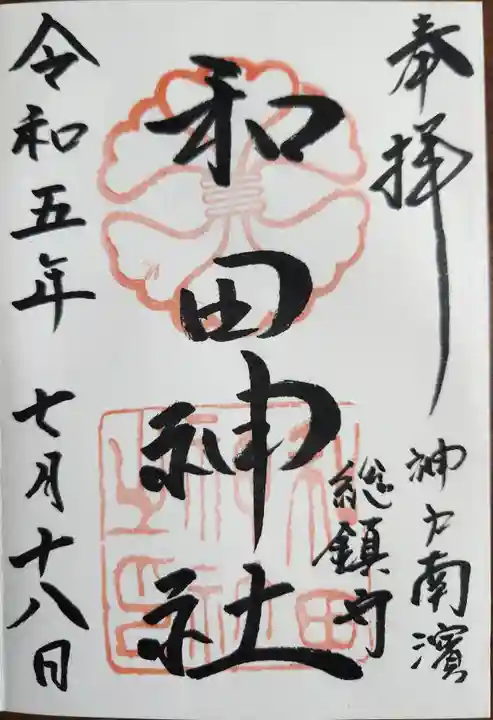 奉拝
神戸南濱
総鎮守
和田神社
令和五年七月十八日